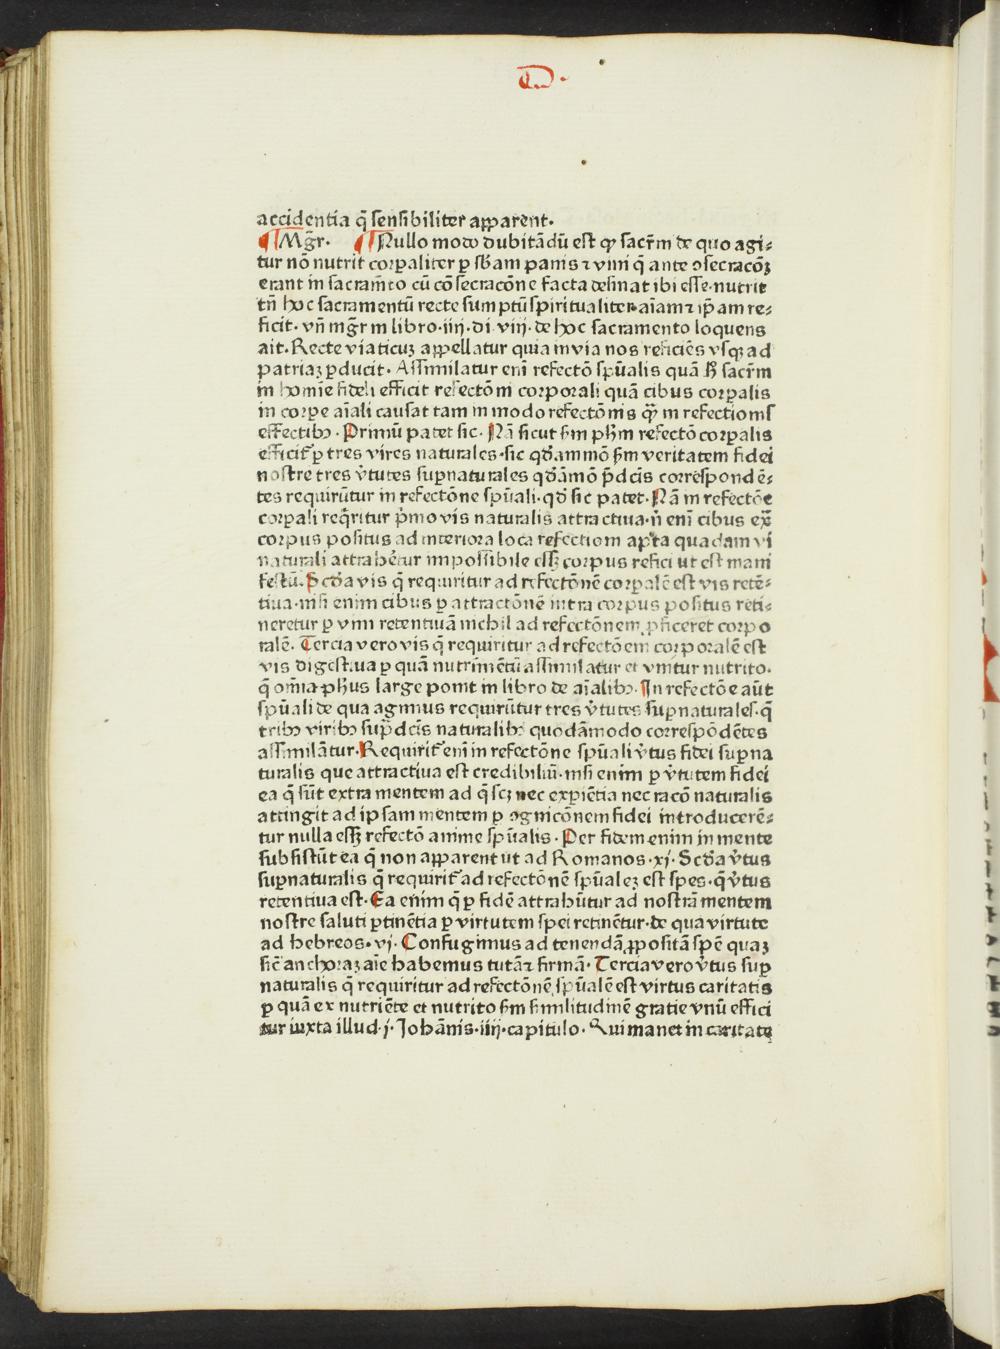 D.
accidentia q̄ sensibiliter apparent.
¶ Mḡr. ¶ Nullo modo dubitādū est qͥ sacr̄m de quo agi⸗
tur nō nutrit corꝑaliter ꝑ sb̄am panis ⁊ vini q̄ ante ↄsecracōꝫ
erant in sacram̄to cū cōsecracōne facta desinat ibi esse. nutrit
tn̄ hoc sacramentū recte sumptū spiritualiter aīam ⁊ ip̄am re⸗
ficit. vn̄ mḡr in libro .iiij. di viij. de hoc sacramento loquens
ait. Recte viaticuꝫ appellatur quia in via nos reficiēs vsqꝫ ad
patriaꝫ ꝑducit. Assimilatur enī refectō spūalis quā h̄ sacr̄m
in homīe fideli efficit refectōni corporali quā cibus corꝑalis
in corꝑe aīali causat tam in modo refectōnis qͣ̄ in refectionis
effectibꝫ. Primū patet sic. Nā sicut sm̄ ph̄m refectō corꝑalis
efficit᷑ ꝑ tres vires naturales. sic qd̄ammō sm̄ veritatem fidei
nostre tres v̄tutes suꝑnaturales qd̄āmō p̄dc̄is correspondē⸗
tes requirūtur in refectōne spūali. qd̄ sic patet. Nā in refectōe
corꝑali req̄ritur p̄mo vis naturalis attractiua. n̄ enī cibus ex̄
corpus positus ad interiora loca refectioni apta quadam vi
naturali attrahēt̄ur impossibile esꝫ corpus refici ut est mani
festū. Scd̄a vis q̄ requiritur ad refectōnē corꝑalē est vis retē⸗
tiua. nisi enim cibus ꝑ attractōnē intra corpus positus reti⸗
neretur ꝑ vim retentiuā nichil ad refectōnem ꝓficeret corpo
ralē. Tercia vero vis q̄ requiritur ad refectōem corporalē est
vis digestiua ꝑ quā nutrimētū assimilatur et vnitur nutrito.
q̄ om̄ia ph̄us large ponit in libro de aīalibꝫ. In refectōe aūt
spūali de qua agimus requirūtur tres v̄tutes suꝑnaturales. q̄
tribꝫ viribꝫ sup̄dc̄is naturalibꝫ quodāmodo correspōdētes
assimilātur. Requirit᷑ enī in refectōne spūali v̄tus fidei suꝑna
turalis que attractiua est credibiliū. nisi enim ꝑ v̄tutem fidei
ea q̄ sūt extra mentem ad q̄ scꝫ nec exꝑiētia nec racō naturalis
attingit ad ipsam mentem ꝑ ↄgnicōnem fidei introducerē⸗
tur nulla esꝫ refectō anime spūalis. Per fidem enim in mente
subsistūt ea q̄ non apparent ut ad Romanos .xj. Scd̄a v̄tus
suꝑnaturalis q̄ requirit᷑ ad refectōnē spūaleꝫ est spes. q̄ v̄tus
retentiua est. Ea enim q̄ ꝑ fidē attrahūtur ad nostrā mentem
nostre saluti ꝑtinētia ꝑ virtutem spei retinētur. de qua virtute
ad hebreos .vj. Confugimus ad tenendā ꝓpositā spē quaꝫ
sic̄ anchoraꝫ aīe habemus tutā ⁊ firmā. Tercia vero v̄tus suꝑ
naturalis q̄ requiritur ad refectōnē spūalē est virtus caritatis
ꝑ quā ex nutriēte et nutrito sm̄ similitudinē gratie vnū effici
tur iuxta illud .j. Johānis .iiij. capitulo. Qui manet in caritate